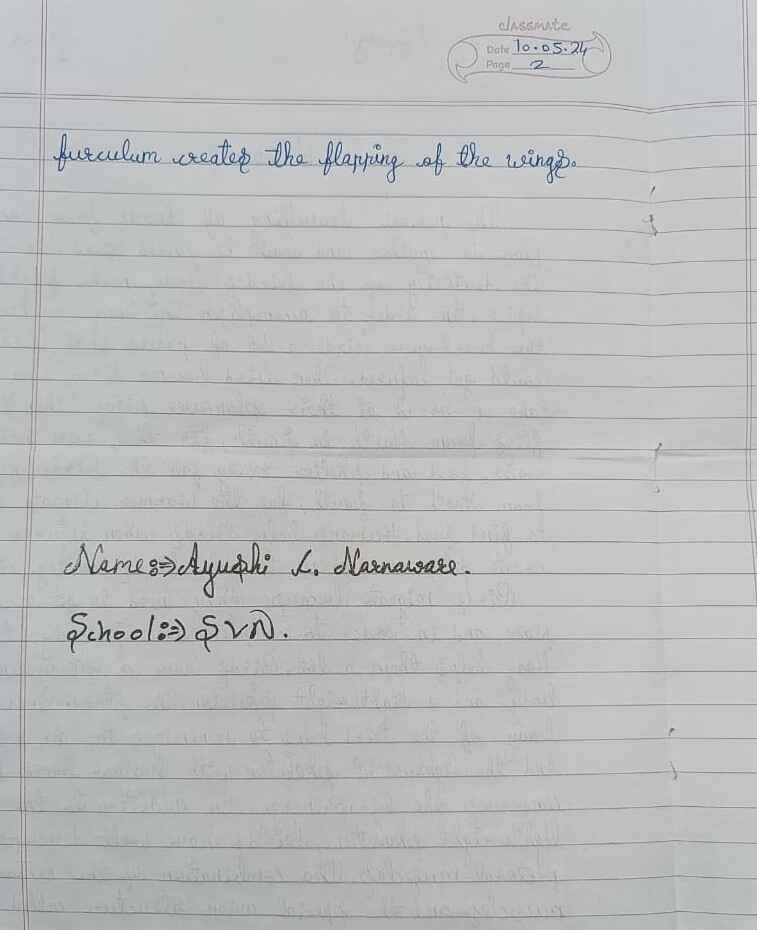 classmate
Date 10.05.24
Page 2
furculum creates the flapping of the wings.
Name:⇒Ayushi L. Narnaware.
School:⇒ SVN.